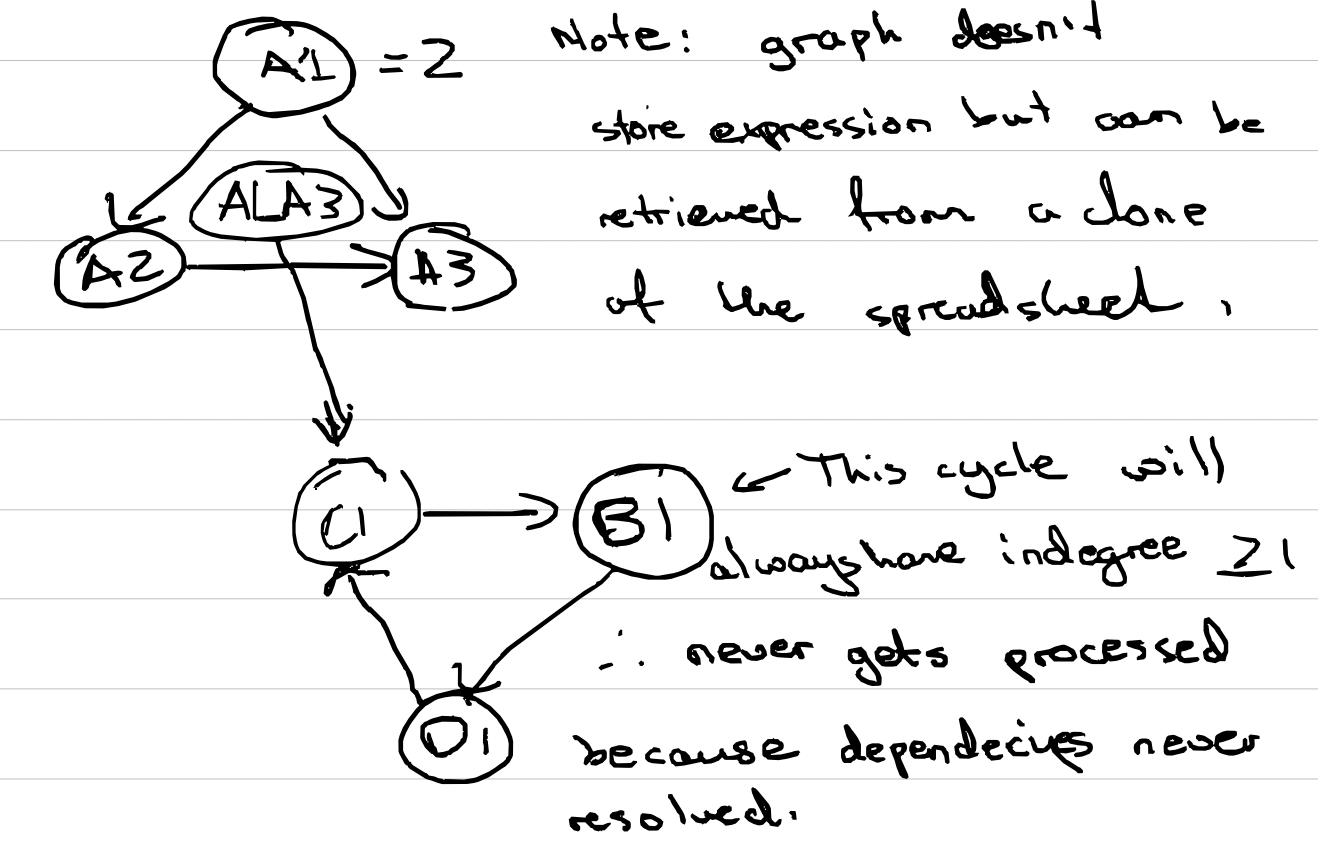 A1 = 2
Note: graph doesn't
store expression but can be
retrieved from a clone
of the spreadsheet.
ALA3
A2
A3
C1
B1
← This cycle will
always have indegree ≥1
∴ never gets processed
D1
because dependeciyes never
resolved.